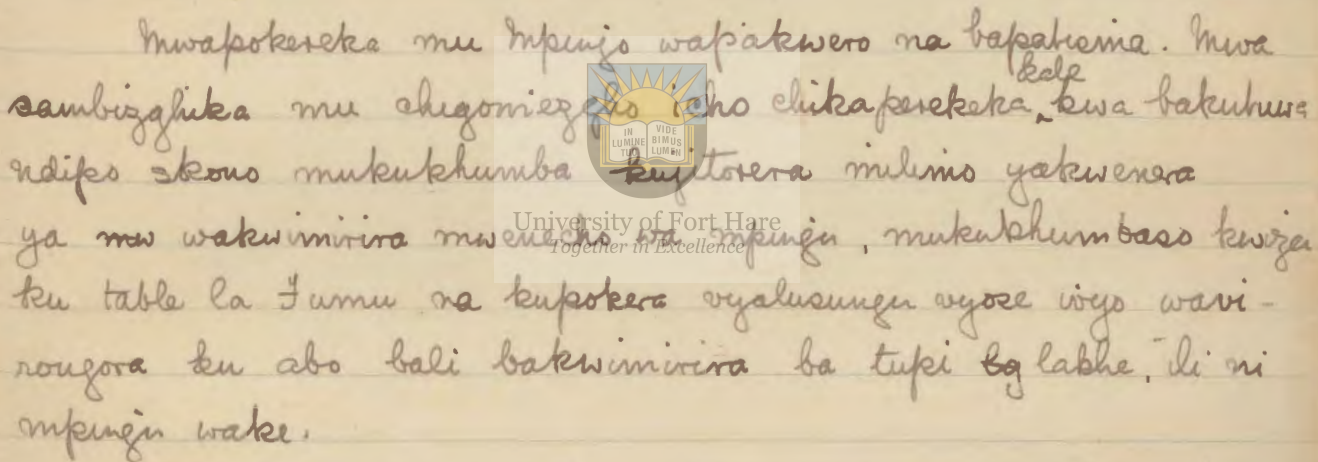 Mwapokereka mu Mpingo wapakwero na bapatiema. Mwa
kale
sambizghika mu chigomezgho icho chikaperekeka kwa bakuhuwa
ndipo sono mukukhumba kujitorera milimo yakwenera
ya mw wakwimirira mwenecho wa mpingu, mukukhumbaso kwiza
ku table la Fumu na kupokera vyalusungu vyose ivyo wavi-
rongora ku abo bali bakwimirira ba tupi bg lakhe, ili ni
mpingu wake.
IN LUMINE TUO VIDEBIMUS LUMEN
University of Fort Hare
Together in Excellence